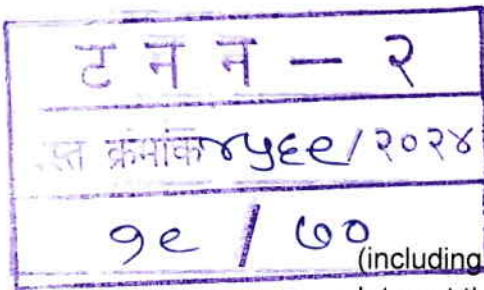 ट न न - २
स्त क्रमांक ४५६९/२०२४
१९ / ७०
(including